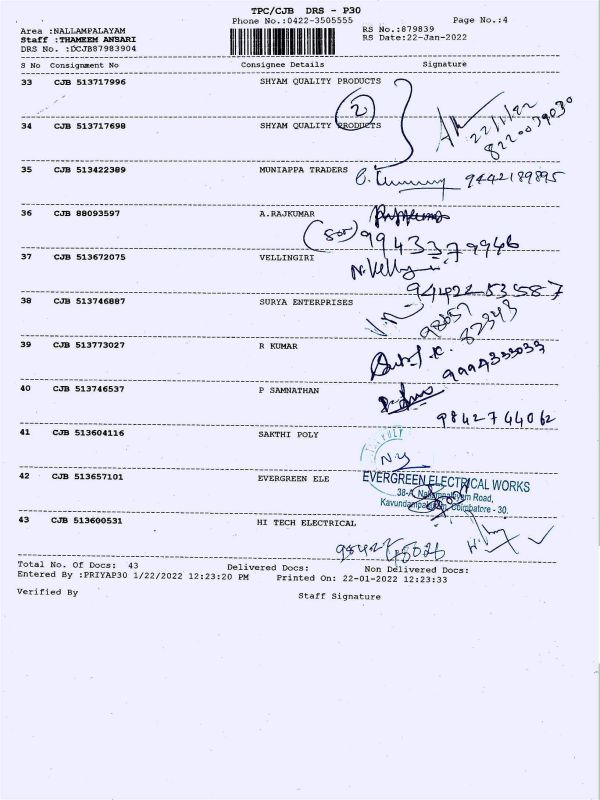 TPC/CJB DRS - P30
Phone No.:0422-3505555 Page No.:4
Area :NALLAMPALAYAM RS No.:879839
Staff :THAMEEM ANSARI RS Date:22-Jan-2022
DRS No. :DCJB87983904
S No Consignment No Consignee Details Signature
33 CJB 513717996 SHYAM QUALITY PRODUCTS
2
22/1/22
8220039030
34 CJB 513717698 SHYAM QUALITY PRODUCTS
35 CJB 513422389 MUNIAPPA TRADERS 9442189895
36 CJB 88093597 A.RAJKUMAR
(Son) 9943379946
37 CJB 513672075 VELLINGIRI
94422-53587
38 CJB 513746887 SURYA ENTERPRISES
98657
82343
39 CJB 513773027 R KUMAR
9994333033
40 CJB 513746537 P SAMNATHAN
9842744062
41 CJB 513604116 SAKTHI POLY
42 CJB 513657101 EVERGREEN ELE EVERGREEN ELECTRICAL WORKS
38-A, Nallampalayam Road,
Kavundampalayam, Coimbatore - 30.
43 CJB 513600531 HI TECH ELECTRICAL
Total No. Of Docs: 43 Delivered Docs: Non Delivered Docs:
Entered By :PRIYAP30 1/22/2022 12:23:20 PM Printed On: 22-01-2022 12:23:33
Verified By Staff Signature